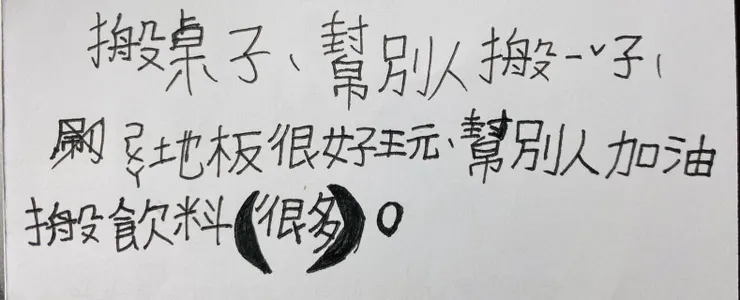 搬桌子、幫別人搬ㄧˇ子、
ㄕㄨㄚ地板很好玩、幫別人加油
搬飲料(很多)。